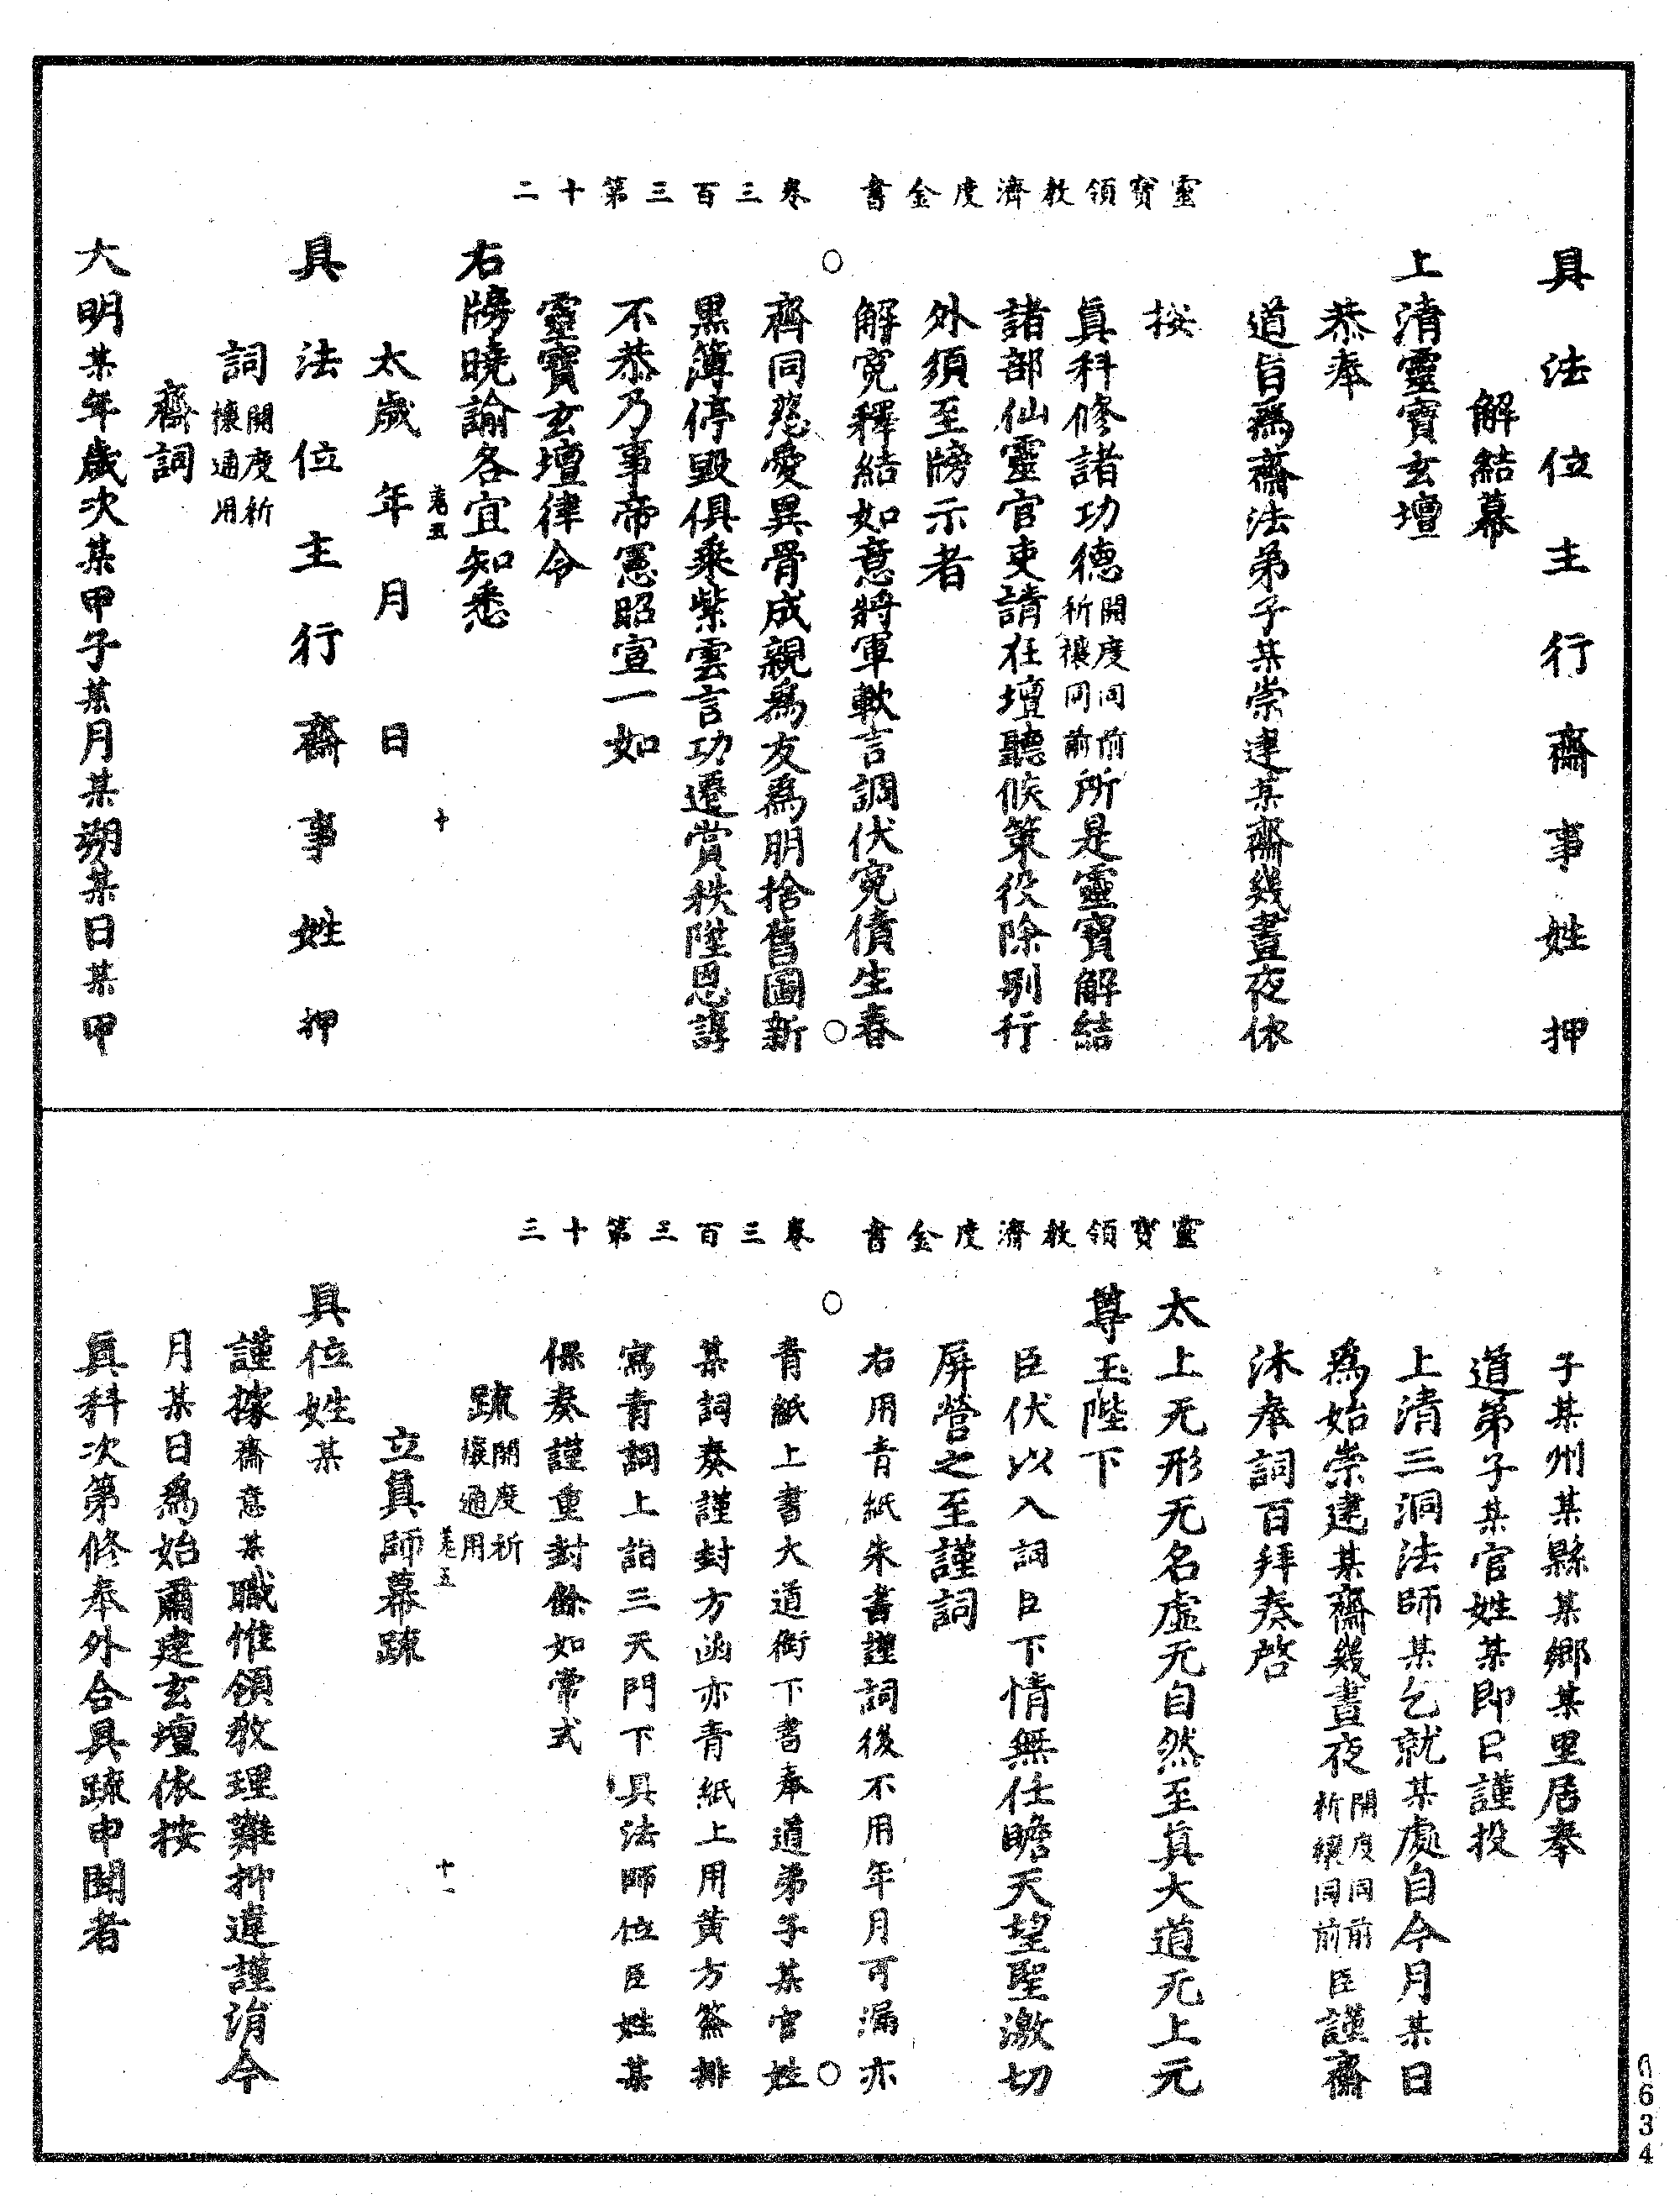 靈寶領教濟度金書　卷三百三第十二
具法位主行齋事姓押
解結幕
上清靈寶玄壇
恭奉
道旨爲齋法弟子某崇建某齋幾晝夜依
按
眞科修諸功德開度同前祈禳同前所是靈寶解結
諸部仙靈官吏請在壇聽候策役除别行
外須至牓示者
解寃釋結如意將軍軟言調伏寃債生春
齊同慈愛異骨成親爲友爲明捨舊圖新
黑簿停毀俱乘紫雲言功遷賞秩陞恩諄
不恭乃事帝憲昭宣一如
靈寶玄壇律令
右牓曉諭各宜知悉
卷五　十
太歲年月日
具法位主行齋事姓押
詞開度祈禳通用
齋詞
大明某年歲次某甲子某月某朔某日某甲
靈寶領教濟度金書　卷三百三第十三
子某州某縣某鄉某里居奉
道弟子某官姓某即日謹投
上清三洞法師某乞就某處自今月某日
爲始崇建某齋幾晝夜開度同前祈禳同前臣謹齋
沐奉詞百拜奏啓
太上无形无名虛无自然至眞大道无上元
尊玉陛下
臣伏以入詞臣下情無任瞻天望聖激切
屏營之至謹詞
右用青紙朱書謹詞後不用年月可漏亦
青紙上書大道御下書奉道弟子某官姓
某詞奏謹封方函亦青紙上用黄方簽排
寫青詞上詣三天門下具法師位臣姓某
保奏謹重封餘如常式
疏開度祈禳通用
卷五　十一
立眞師幕疏
具位姓某
謹據齋意某職惟領教理難抑違謹涓今
月某日爲始肅建玄壇依按
眞科次第修奉外合具疏申聞者
6634